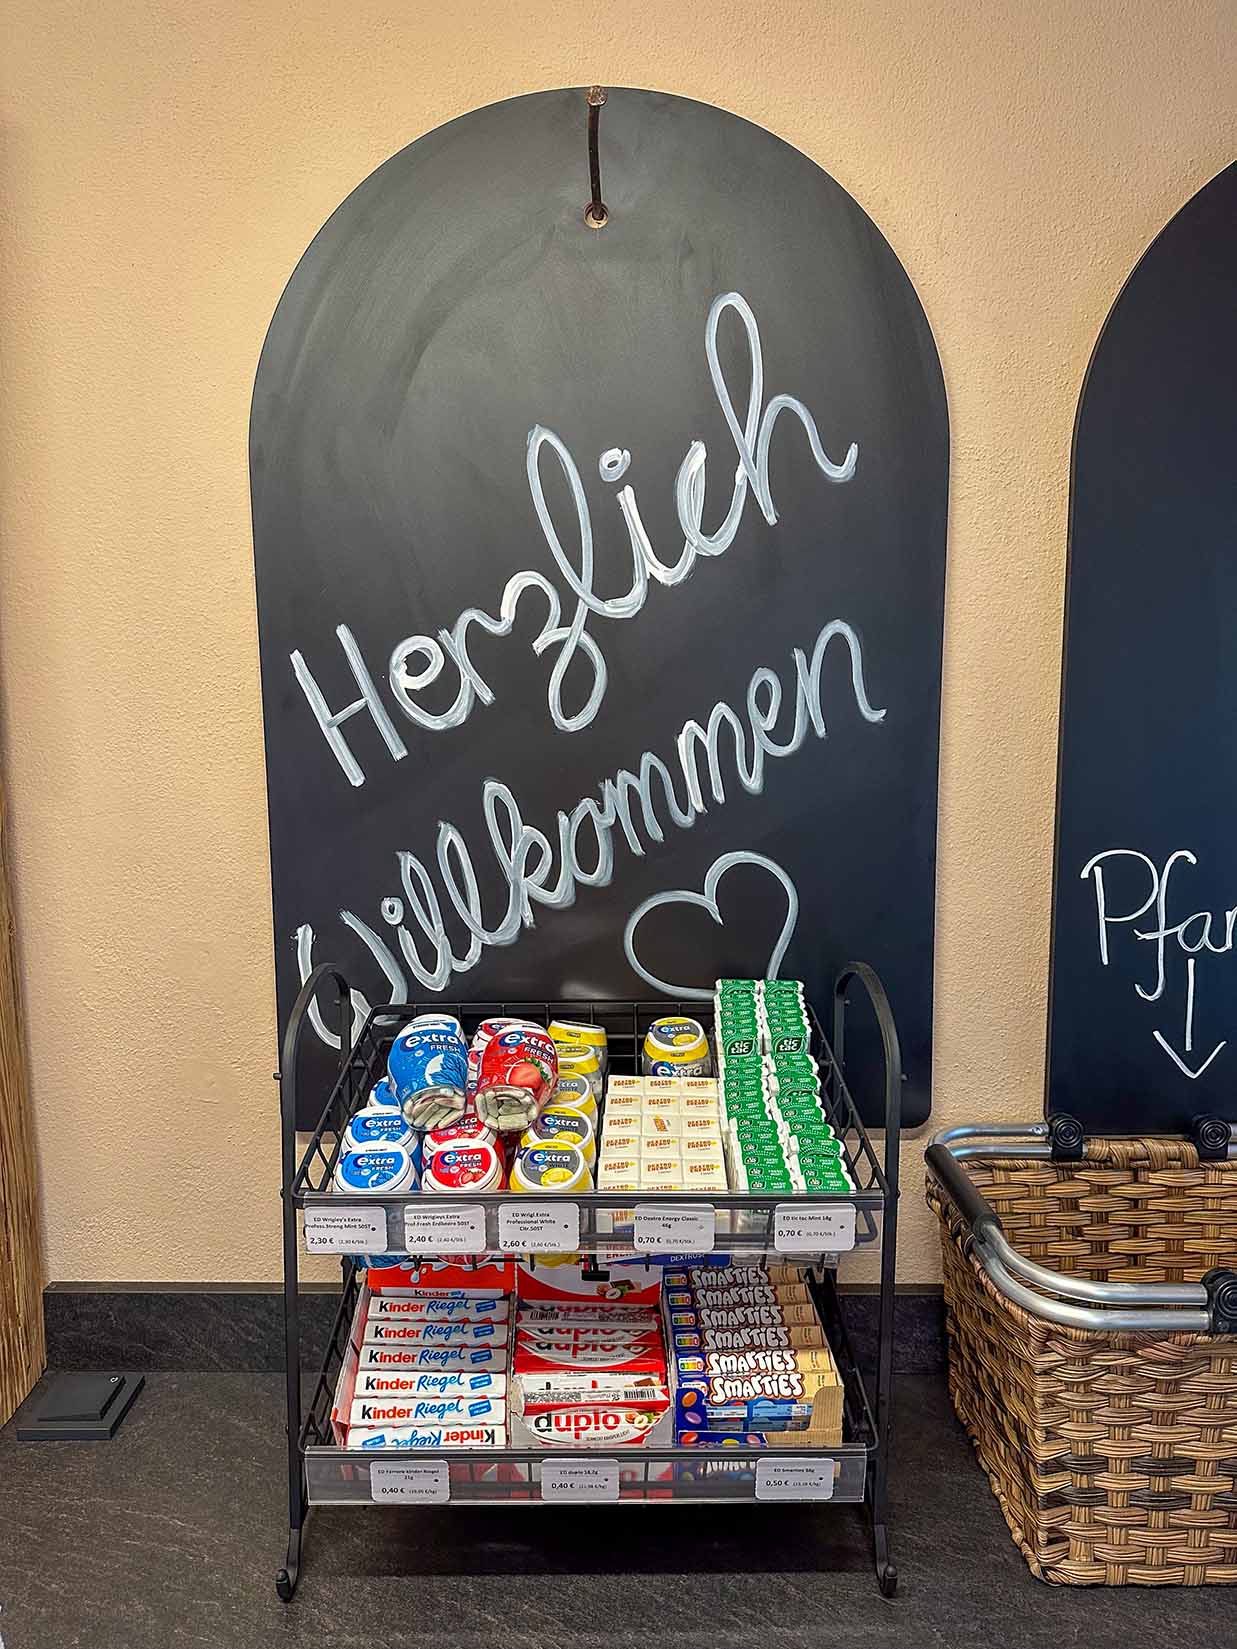 Herzlich
Willkommen
Pfan
extra
FRESH
extra
FRESH
extra
tic
tac
extra
FRESH
extra
extra
FRESH
extra
FRESH
extra
WHITE
ED Wrigley's Extra
Profess.Strong Mint 50ST
2,30 € (2,30 €/Stk.)
ED Wrigleys Extra
Prof.Fresh Erdbeere 50ST
2,40 € (2,40 €/Stk.)
ED Wrigl.Extra
Professional White
Citr.50ST
2,60 € (2,60 €/Stk.)
ED Dextro Energy Classic
46g
0,70 € (0,70 €/Stk.)
ED tic tac Mint 18g
0,70 € (0,70 €/Stk.)
Kinder
Kinder Riegel
Kinder Riegel
Kinder Riegel
Kinder Riegel
Kinder Riegel
Kinder Riegel
duplo
duplo
duplo
duplo
SMARTIES
SMARTIES
SMARTIES
SMARTIES
SMARTIES
SMARTIES
ED Ferrero Kinder Riegel
21g
0,40 €
ED duplo 18,2g
0,40 €
ED Smarties
0,50 €